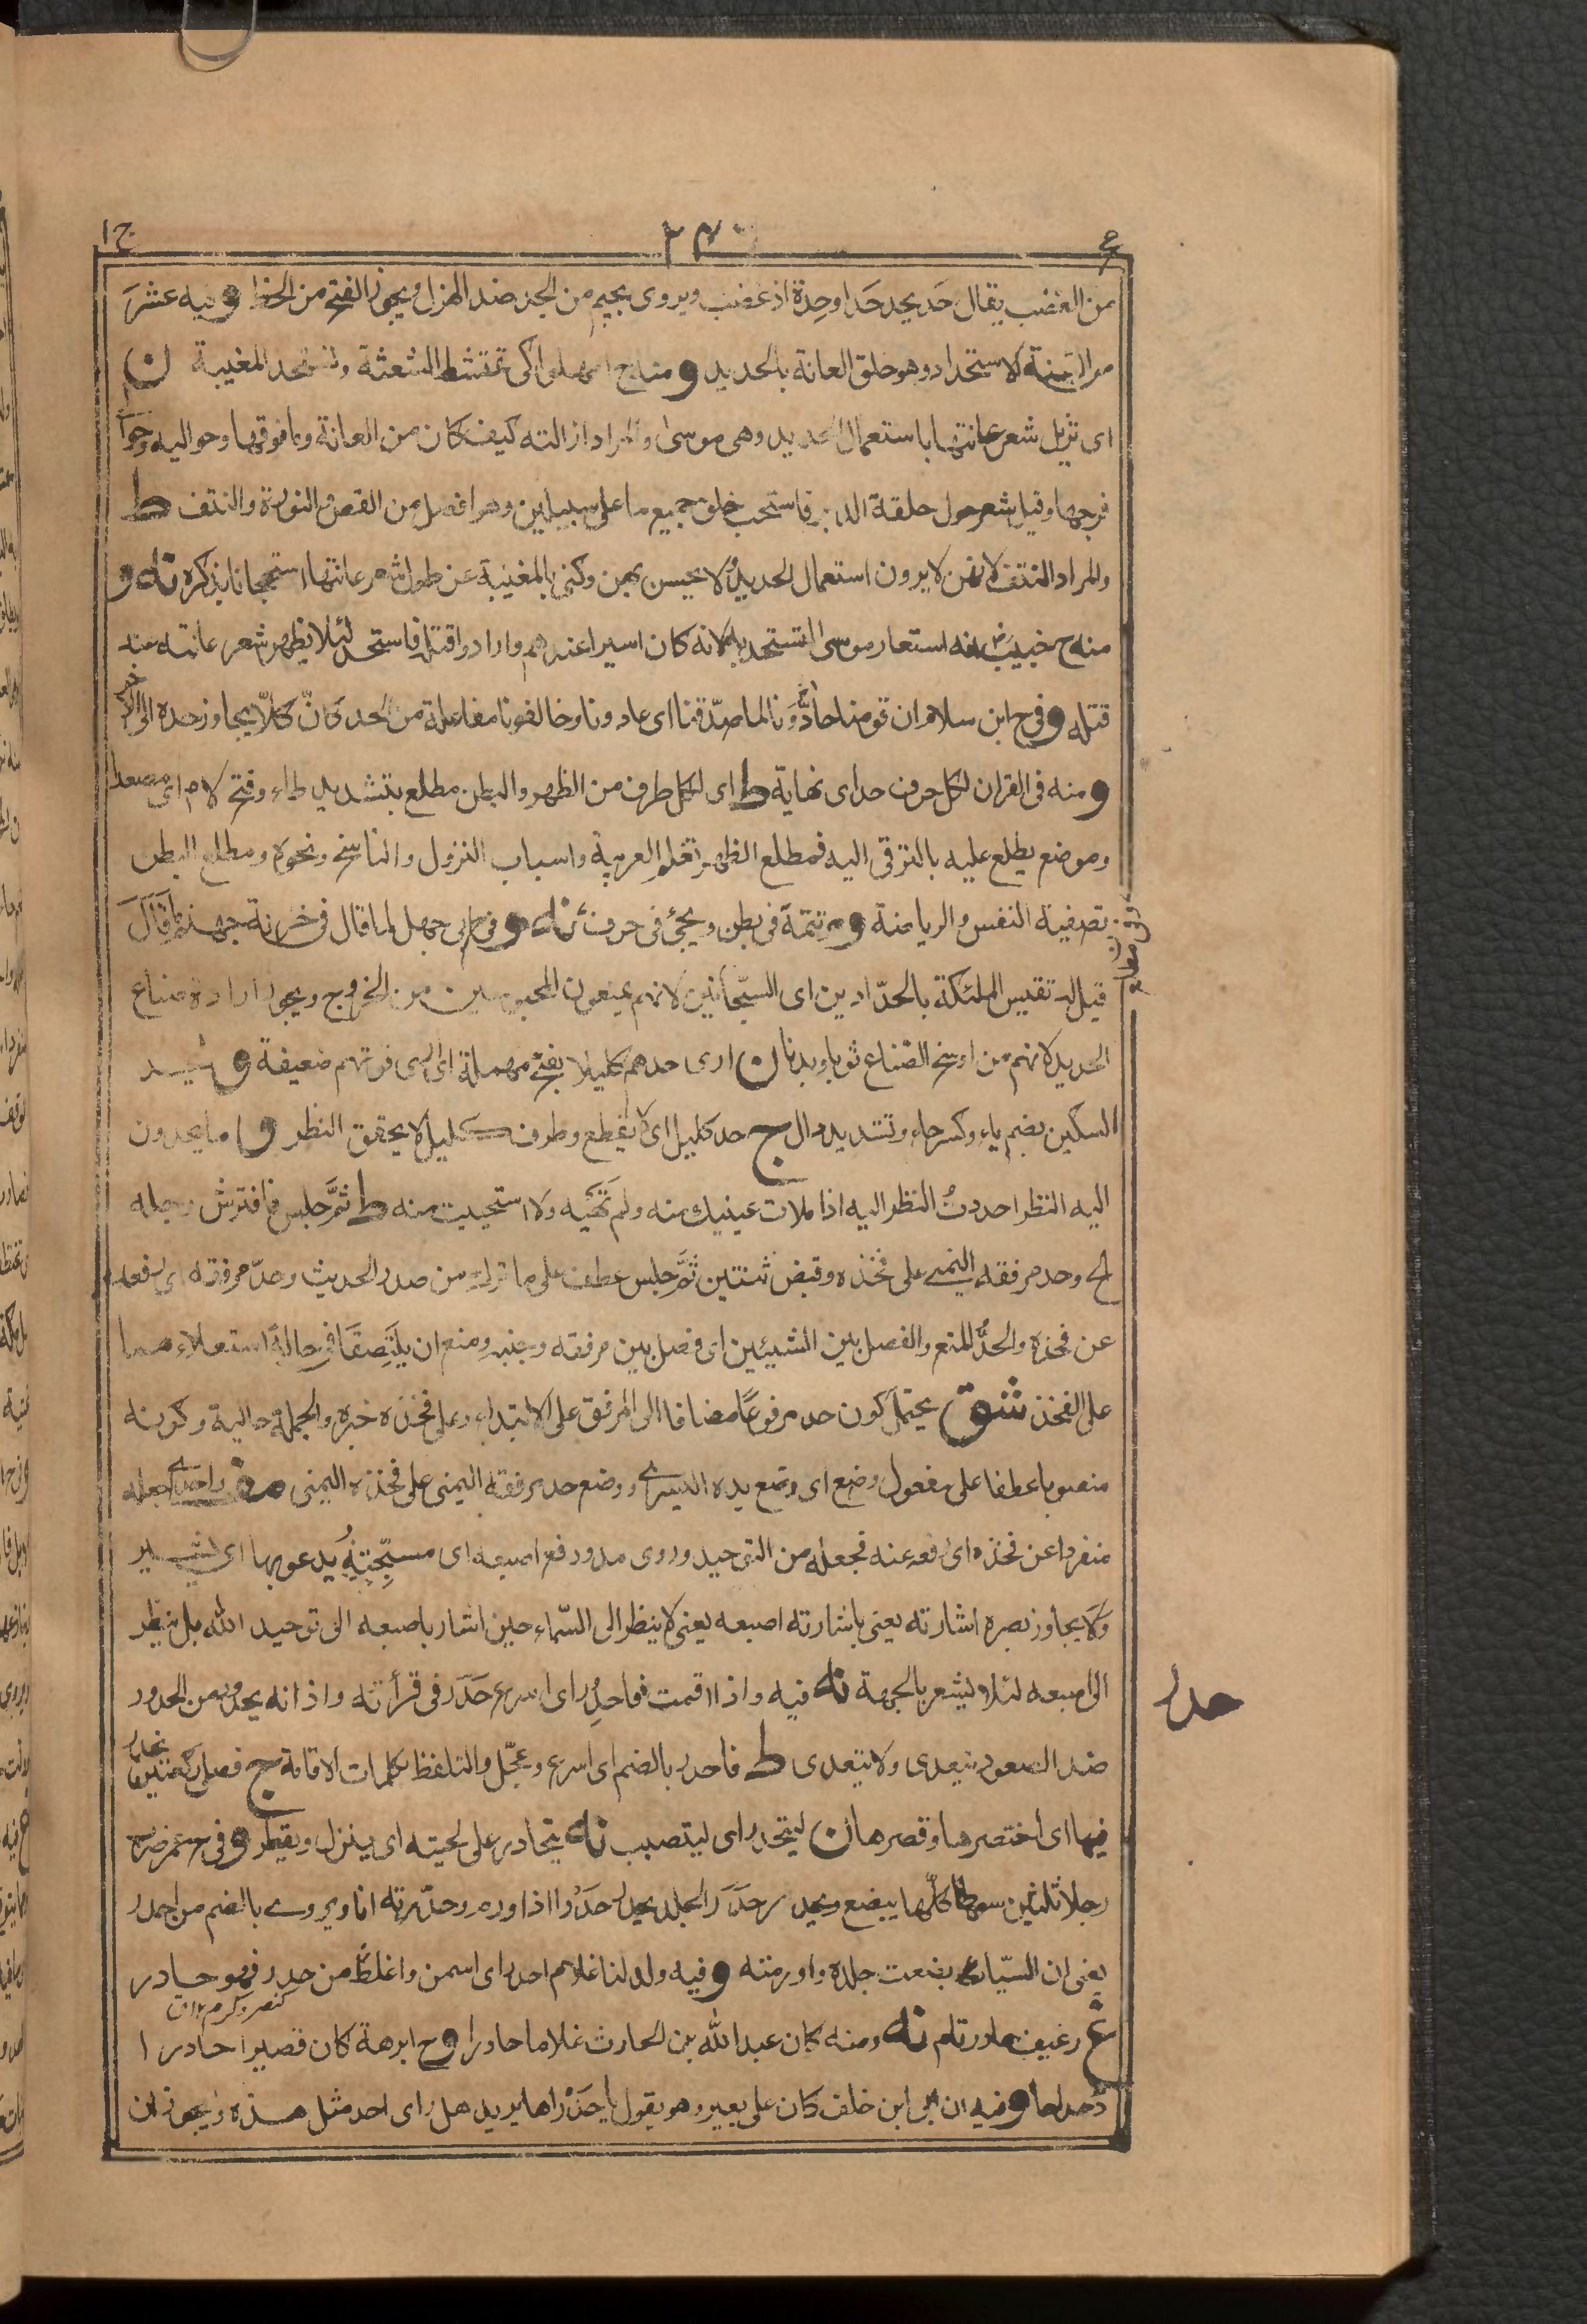 ج ا
٢٤٠
ح
من الغضب يقال حَد يحد حَدا وحِدة اذ غضب ويروى بجيم من الجد ضد الهزل ويجوز الفتح من الحظ و فيه عشرَ
من السنة الاستحداد وهو حلق العانة بالحديد و منه ح امهلوا كى تمتشط الشعثة وتستحد المغيبة ن
اى تزيل شعر عانتها باستعمال الحديد وهى موسى والمراد ازالته كيف كان من العانة وما فوقها وحواليه وحوا
فرجها وقيل شعر حول حلقة الدبر فاستحب حلق جميع ما على سبيلين وهو افضل من القص والنورة والنتف ط
والمراد النتف لانهن لا يرون استعمال الحديد ولا يحسن بهن وكنى بالمغيبة عن طول شعر عانتها استهجانا بذكره نه و
منه ح خبيب انه استعار موسى لتستحد بها لانه كان اسيرا عندهم وارادوا قتله فاستحد لئلا يظهر شعر عانته عند
قتله و فى ح ابن سلام ان قومنا حادُّونا لما صدّقنا اى عادونا وخالفونا مفاعلة من الحد كانّ كلاّ يجاوز حده الى الاخر
و منه فى القران لكل حرف حد اى نهاية ط اى لكل طرف من الظهر والبطن مطلع بتشديد طاء وفتح لام اى مصعد
وموضع يطلع عليه بالترقى اليه فمطلع الظهر تعلم العربية واسباب النزول والناسخ ونحوه ومطلع البطن
تصفية النفس والرياضة و مر تتمة فى بطن ويجئ فى حرف نه و فى ح ابى جهل لما قال فى خزنة جهنم ما قَالَ
قيل له تقيس الملئكة بالحدّادين اى السجّانين لانهم يمنعون المحبوسين من الخروج ويجوز ارادة صناع
الحديد لانهم من اوسخ الصناع ثوبا وبدنا ن ارى حدهم كليلا بفتح مهملة اى ارى قوتهم ضعيفة و يحد
السكين بضم ياء وكسر حاء وتشديد دال ج حد كليل اى لا يقطع وطرف كليل لا يحقق النظر و ما يحدون
اليه النظر احددتُ النظر اليه اذا ملات عينيك منه ولم تَهَبه ولا استحييت منه ط ثمَّ جلس فافترش رجله
الخ وحد مرفقه اليمنى على فخذه وقبض ثنتين ثمَّ جلس عطف على ما ترك من صدر الحديث وحدّ مرفقه اى رفعه
عن فخذه والحدُّ المنع والفصل بين الشيئين اى فصل بين مرفقه وجنبه ومنع ان يلتصقا فى حالة استعلاءهما
على الفخذ شق يحتمل كون حد مرفوعًا مضافا الى المرفق على الابتداء وعلى فخذه خبره والجملة حالية وكونه
منصوبا عطفا على مفعول وضع اى وضع يده اليسرى ووضع حد مرفقه اليمنى على فخذه اليمنى مف وحد اى جعله
منفردا عن فخذه اى رفعه عنه فجعله من التوحيد وروى مد ورفع اصبعه اى مسبّحته يدعو بها اى يشير
ولا يجاوز بصره اشارته يعنى باشارته اصبعه يعنى لا ينظر الى السّماء حين اشار باصبعه الى توحيد الله بل ينظر
الى اصبعه لئلا يشعر بالجهة نه فيه واذا اقمت فاحدر اى اسرع حَدَر فى قرأته واذانه يحدر من الحدور
ضد الصعود يتعدى ولا يتعدى ط فاحدر بالضم اى اسرع وعجّل والتلفظ بكلمات الاقامة ج فصلى ركعتين يحدر
فيها اى اختصرهما وقصرهما ن ليتحدر اى ليتصبب نه يتحادر على لحيته اى ينزل ويقطر و فى ح عمر ضرب
رجلا ثلثين سوطا كلها يبضع ويحدر حَدَرَ الجلد يحدر حَدْرا اذا ورم وحدّرته انا ويروى بالضم من احدر
يعنى ان السياط بضعت جلده واورمته و فيه ولد لنا غلام احدر اى اسمن واغلظ من حدر فهو حادر
كنصر وكرم ١٢ ق
غ رغيف حادر تام نه ومنه كان عبد الله بن الحارث غلاما حادرا و ح ابرهة كان قصيرا حادرا
دحداحا و فيه ان ابى ابن خلف كان على بعير وهو يقول يا حَدْراها يريد هل راى احد مثل هذه ويجوز ان
حدر